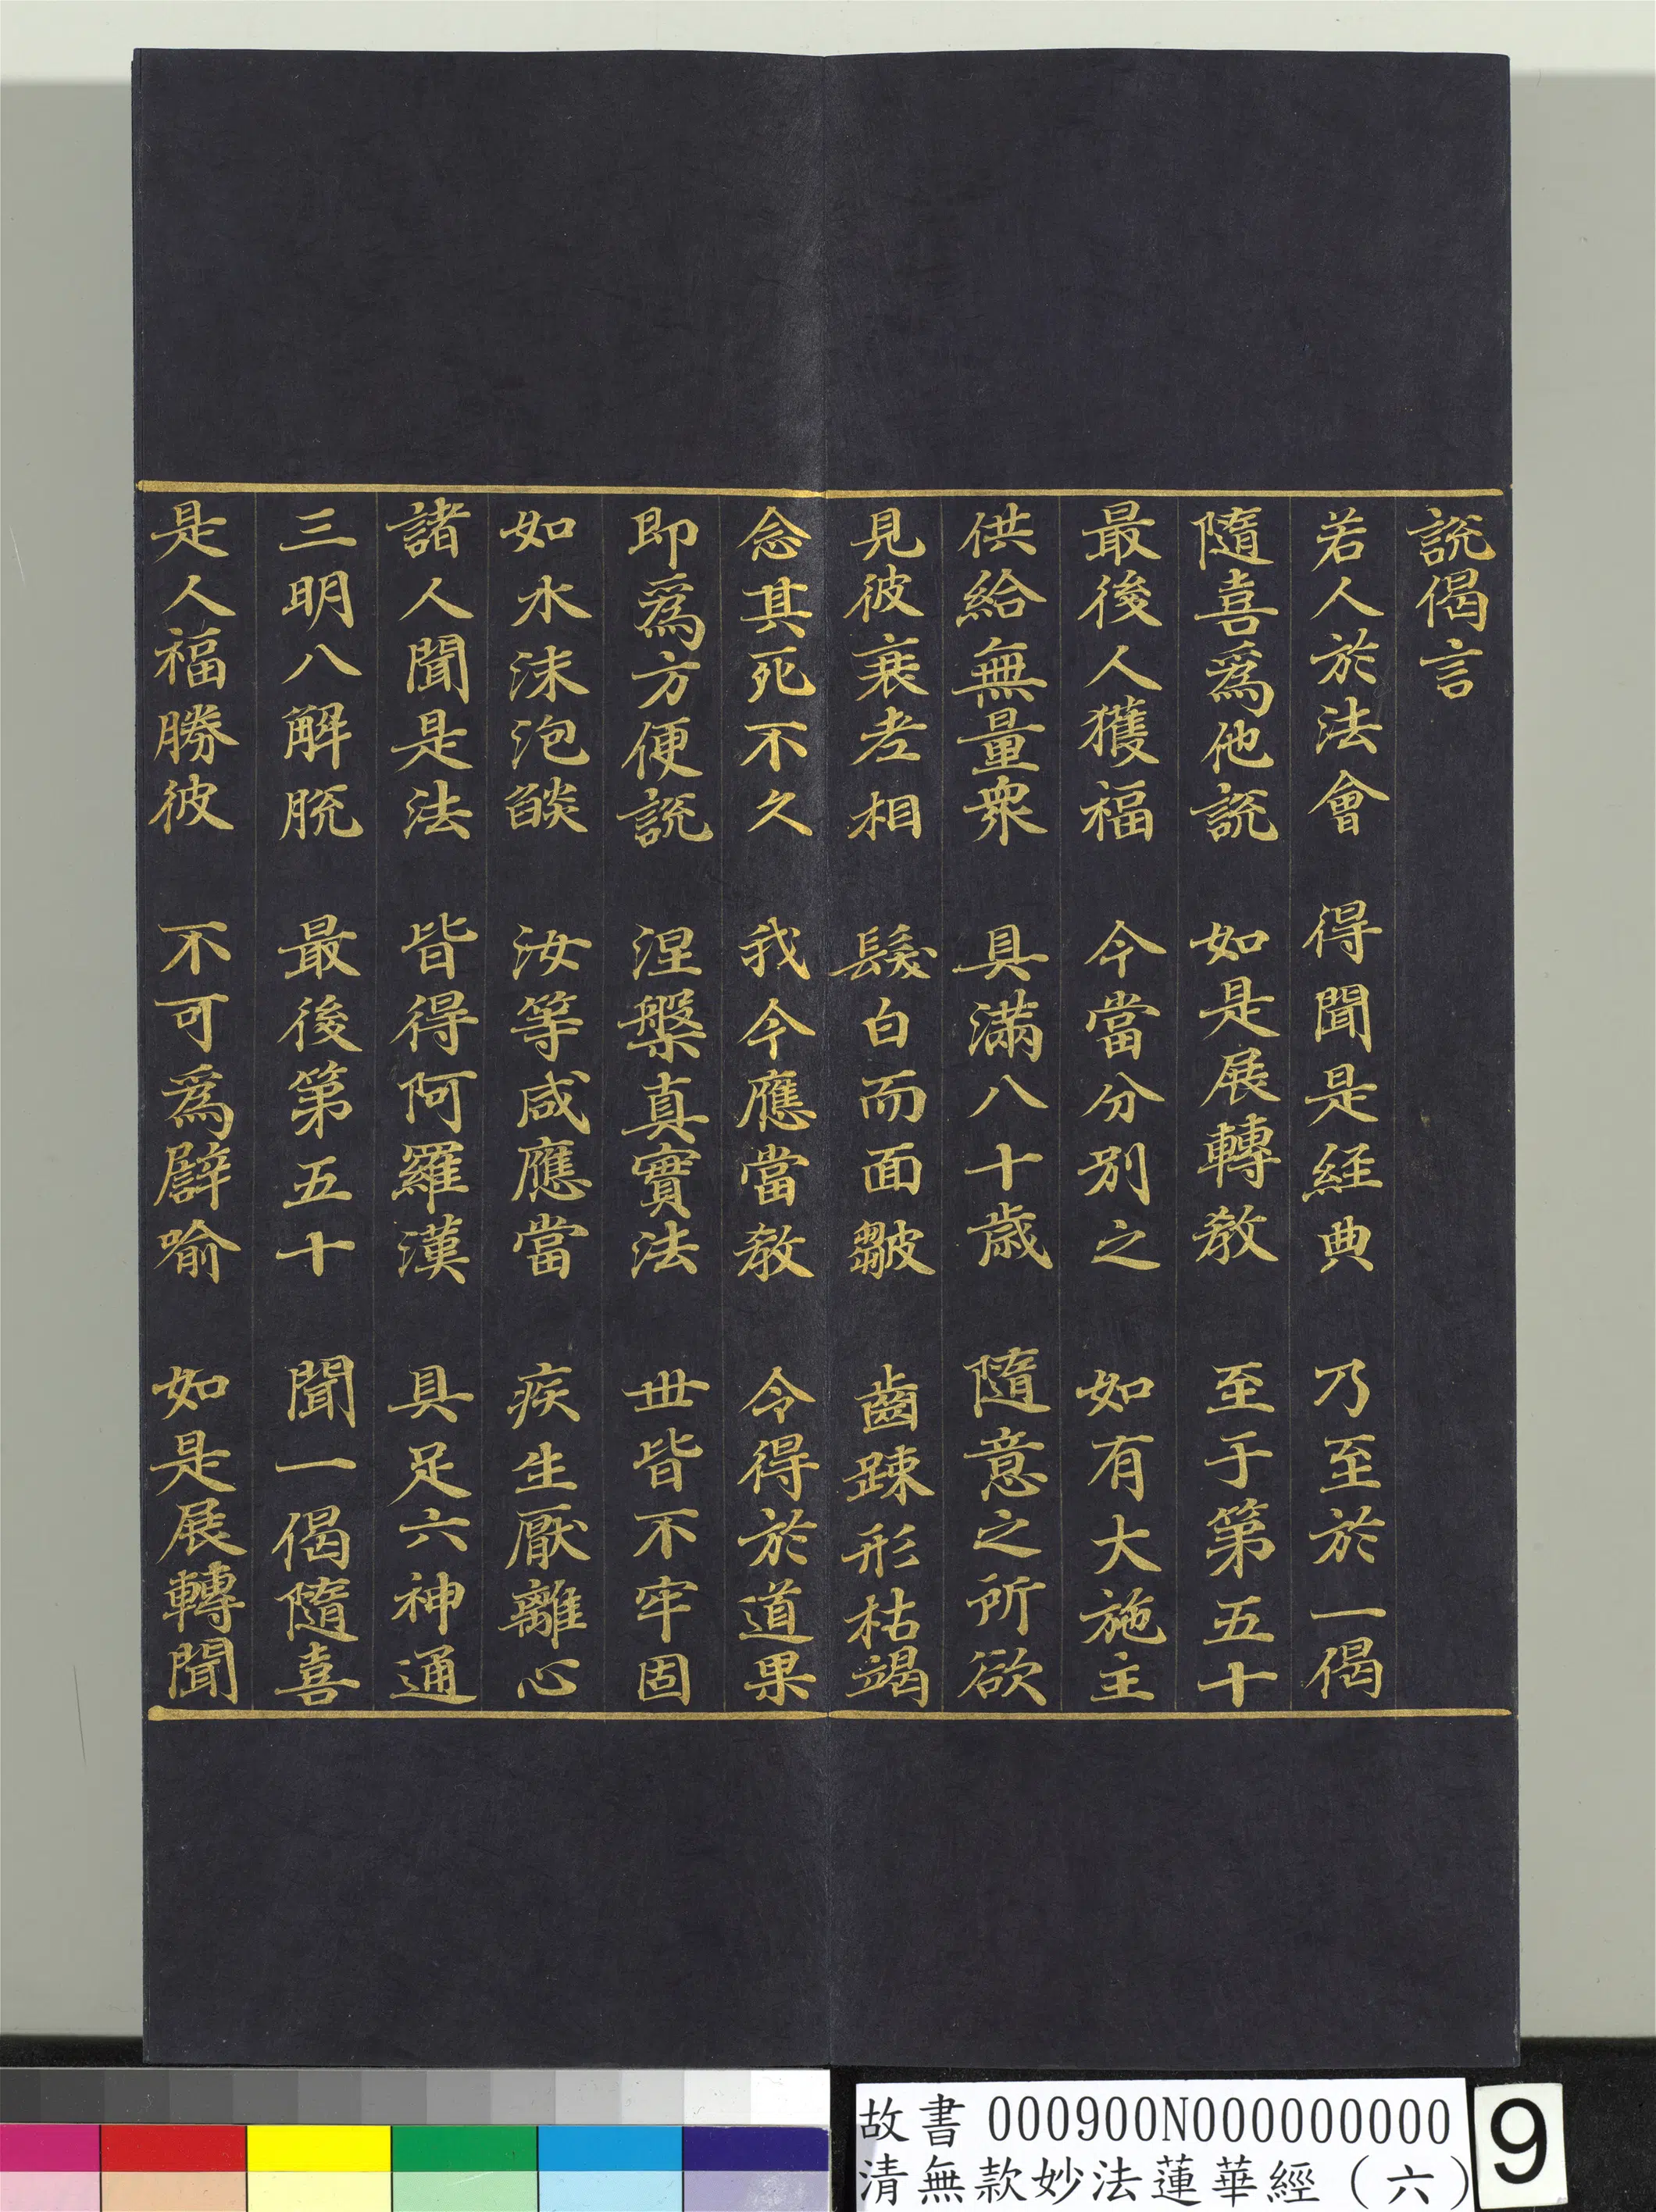 說偈言
若人於法會　得聞是經典　乃至於一偈
隨喜爲他說　如是展轉教　至于第五十
最後人獲福　今當分別之　如有大施主
供給無量衆　具滿八十歲　隨意之所欲
見彼衰老相　髮白而面皺　齒踈形枯竭
念其死不久　我今應當教　令得於道果
即爲方便說　涅槃真實法　世皆不牢固
如水沫泡燄　汝等咸應當　疾生厭離心
諸人聞是法　皆得阿羅漢　具足六神通
三明八解脫　最後第五十　聞一偈隨喜
是人福勝彼　不可爲譬喻　如是展轉聞
故書 000900N000000000
清無款妙法蓮華經（六）
9